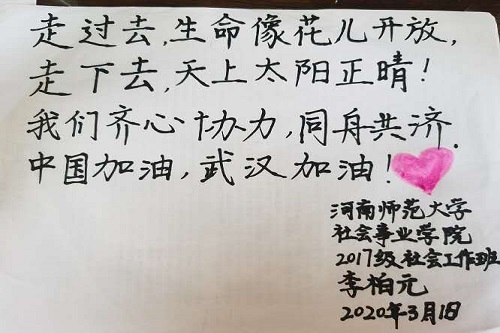 走过去,生命像花儿开放,
走下去,天上太阳正晴!
我们齐心协力,同舟共济.
中国加油,武汉加油!
河南师范大学
社会事业学院
2017级社会工作班
李柏元
2020年3月1日